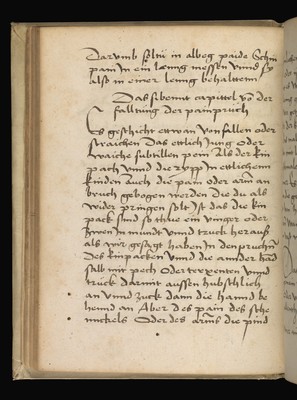 Darumb soltu in albeg paide
pain in ein leng messen vnnd sy
also in einer leng behalltenn
Das sibennt capittel von der
falltung der painpruch
Es geschicht ettwan von fallen oder
straichen Das ettlich Jung oder
waiche subtillen pein Als der kin
pach vnnd die ripp In ettlichenn
kinden Auch die pain oder arm an
bruch gebogen werden die du also
wider pringen solt Ist das die kin
pack sind so thue ein vinger oder
zwen in mundt vnnd truck herauß
als wir gesagt haben In den pruchn
des kinpacken vnnd die annder hand
salb mit pech oder vnnd
trück darmit aussen hubschlich
an vnnd zuck dann die hannd be
hennd an Aber des pain des sche
nnckels Oder des arms die pind